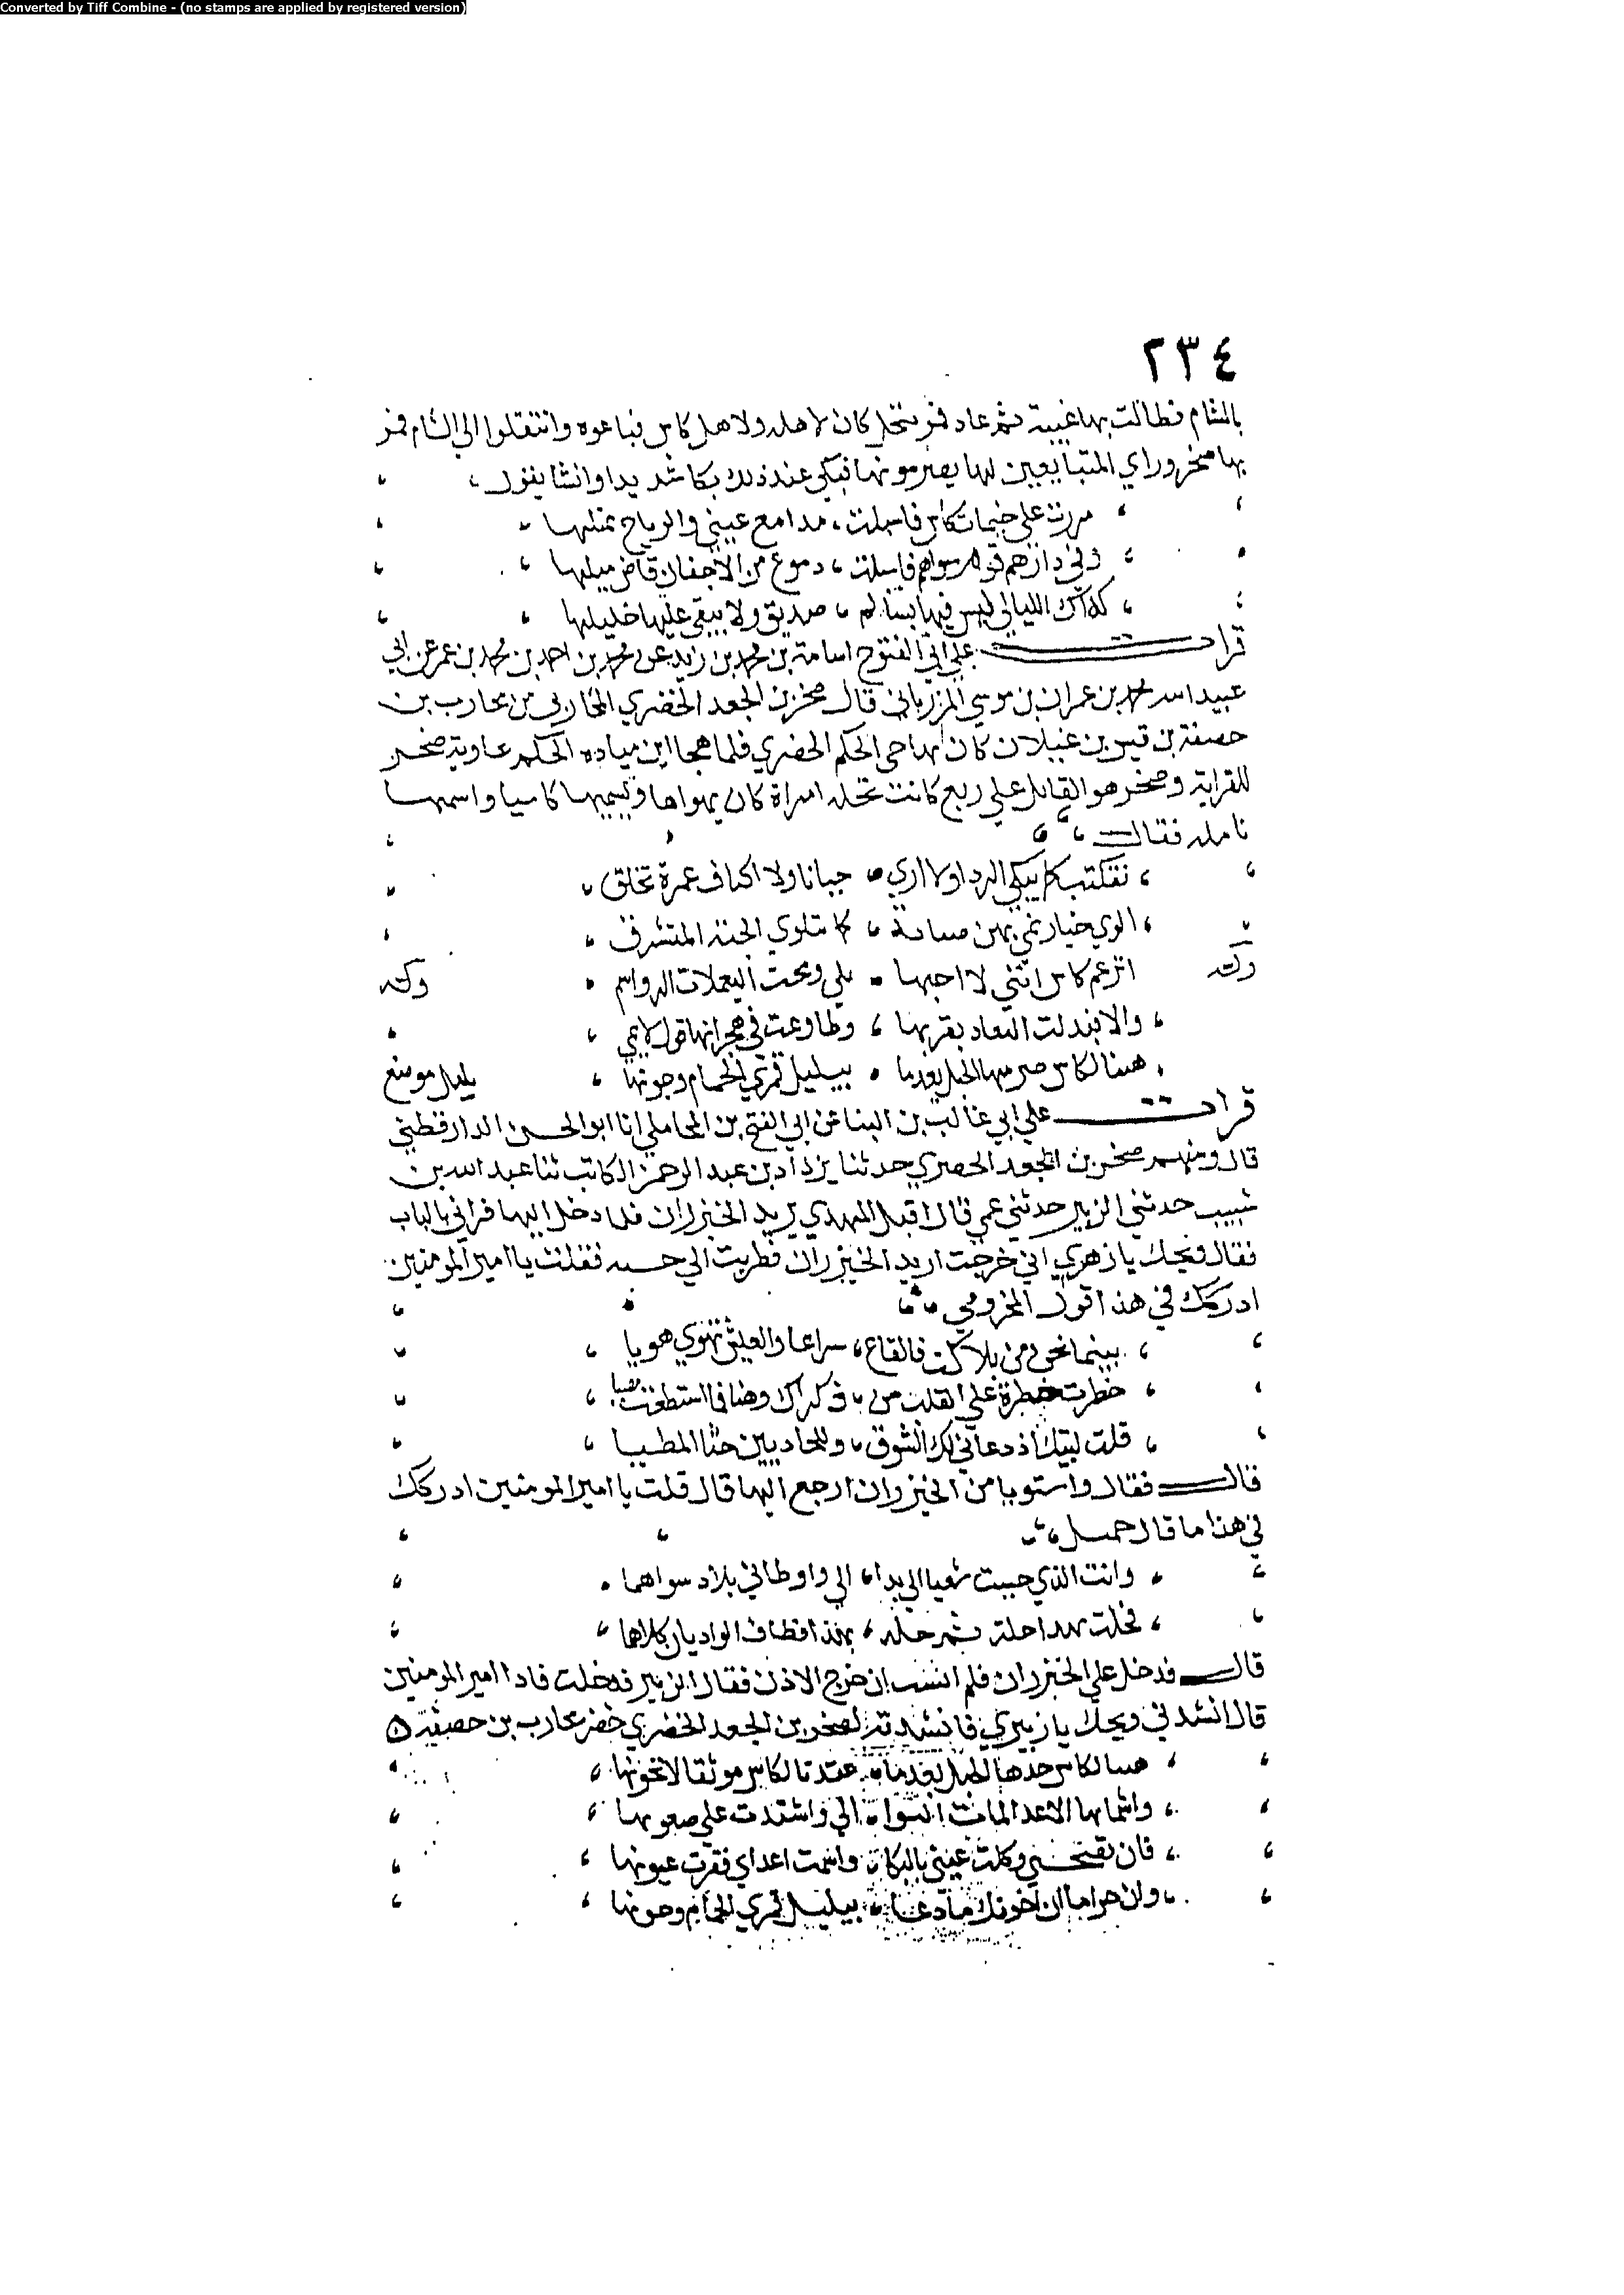 Converted by Tiff Combine - (no stamps are applied by registered version)
٢٣٤
بالشام فطالت بها غيبته ثم عاد فمر بنخل كان لاهله ولاهل كاس فباعوه وانتقلوا الي الشام فمر
بها صخر وراي المتبايعين لها يصرمونها فبكي عند ذلك بكا شديدا وانشا يقول
مررت علي خيمات كاس فاسبلت مدامع عيني والرياح تميلها
وفي دارهم قوم سواهم فاسبلت دموع من الاجفان فاض مسيلها
كذاك الليالي ليس فيها بسالم صديق ولا يبقي عليها خليلها
قرات علي ابي الفتوح اسامة بن محمد بن زيد عن محمد بن احمد بن محمد بن عمر عن ابي
عبيد الله محمد بن عمران بن موسي المرزباني قال صخر بن الجعد الخضري المحاربي من محارب بن
حصفة بن قيس بن غيلان كان يهاجي الحكم الخضري فلما هجا ابن مياده الحكم عاونه صخر
للقرابة وصخر هو القايل علي ربع كانت تحله امراة كان يهواها ويسميها كاسا واسمها
فقال
بكيت كما يبكي الردا ولا اري جبانا ولا اكناف عمرة تخلق
الوي حيازيمي بهن صبابة كما تتلوي الحية المتشرق
وله اتزعم كاس انني لا احبها بلي وبحت اليعملات الرواسم وله
والا فبدلت البعاد بقربها وطاوعت في هجرانها قول لايمي
هنيا لكاس صرمها الحبل بعدما بيليل قمري الحمام وجونها يليل موضع
قرات علي ابي غالب بن البنا عن ابي الفتح بن المحاملي انا ابو الحسن الدارقطني
قال ومنهم صخر بن الجعد الخضري حدثنا يزداد بن عبد الرحمن الكاتب ثنا عبد الله بن
شبيب حدثني الزبير حدثني عمي قال اقبل المهدي يريد الخيزران فلما دخل اليها فراني بالباب
فقال ويحك يا زهري اني خرجت اريد الخيزران فطربت الي حسنه فقلت يا امير المومنين
ادركك في هذا قول المخزومي
بينما نحن من بلاكث فالقاع سراعا والعيش تهوي هويا
خطرت خطرة علي القلب من ذكراك وهنا فما استطعت مضيا
قلت لبيك اذ دعاني لك الشوق وللحاديين حثا المطيا
قال فقال واستوبا من الخيزران ارجع اليها قال قلت يا امير المومنين ادركك
في هذا ما قال جميل
وانت الذي حببت شعبا الي بدا الي واوطاني بلاد سواهما
فحلت بهذا حلة ثم حلة بهذا فطاف الواديان كلاهما
قال فدخل علي الخيزران فلم انشب ان خرج الاذن فقال الزبير فدخلت فاذا امير المومنين
قال انشدني ويحك يا زبيري فانشدته لصخر بن الجعد الخضري خضر محارب بن حصفة
هنيا لكاس جدها الحبل بعدما عقدنا لكاس موثقا لا نخونها
واشماتها الاعدا الي واشتدت علي
فان تصبحي وكلت عيني بالبكا واشمت اعداي فقرت عيونها
وان حراما ان اخونك ما دعا بيليل قمري الحمام وجونها